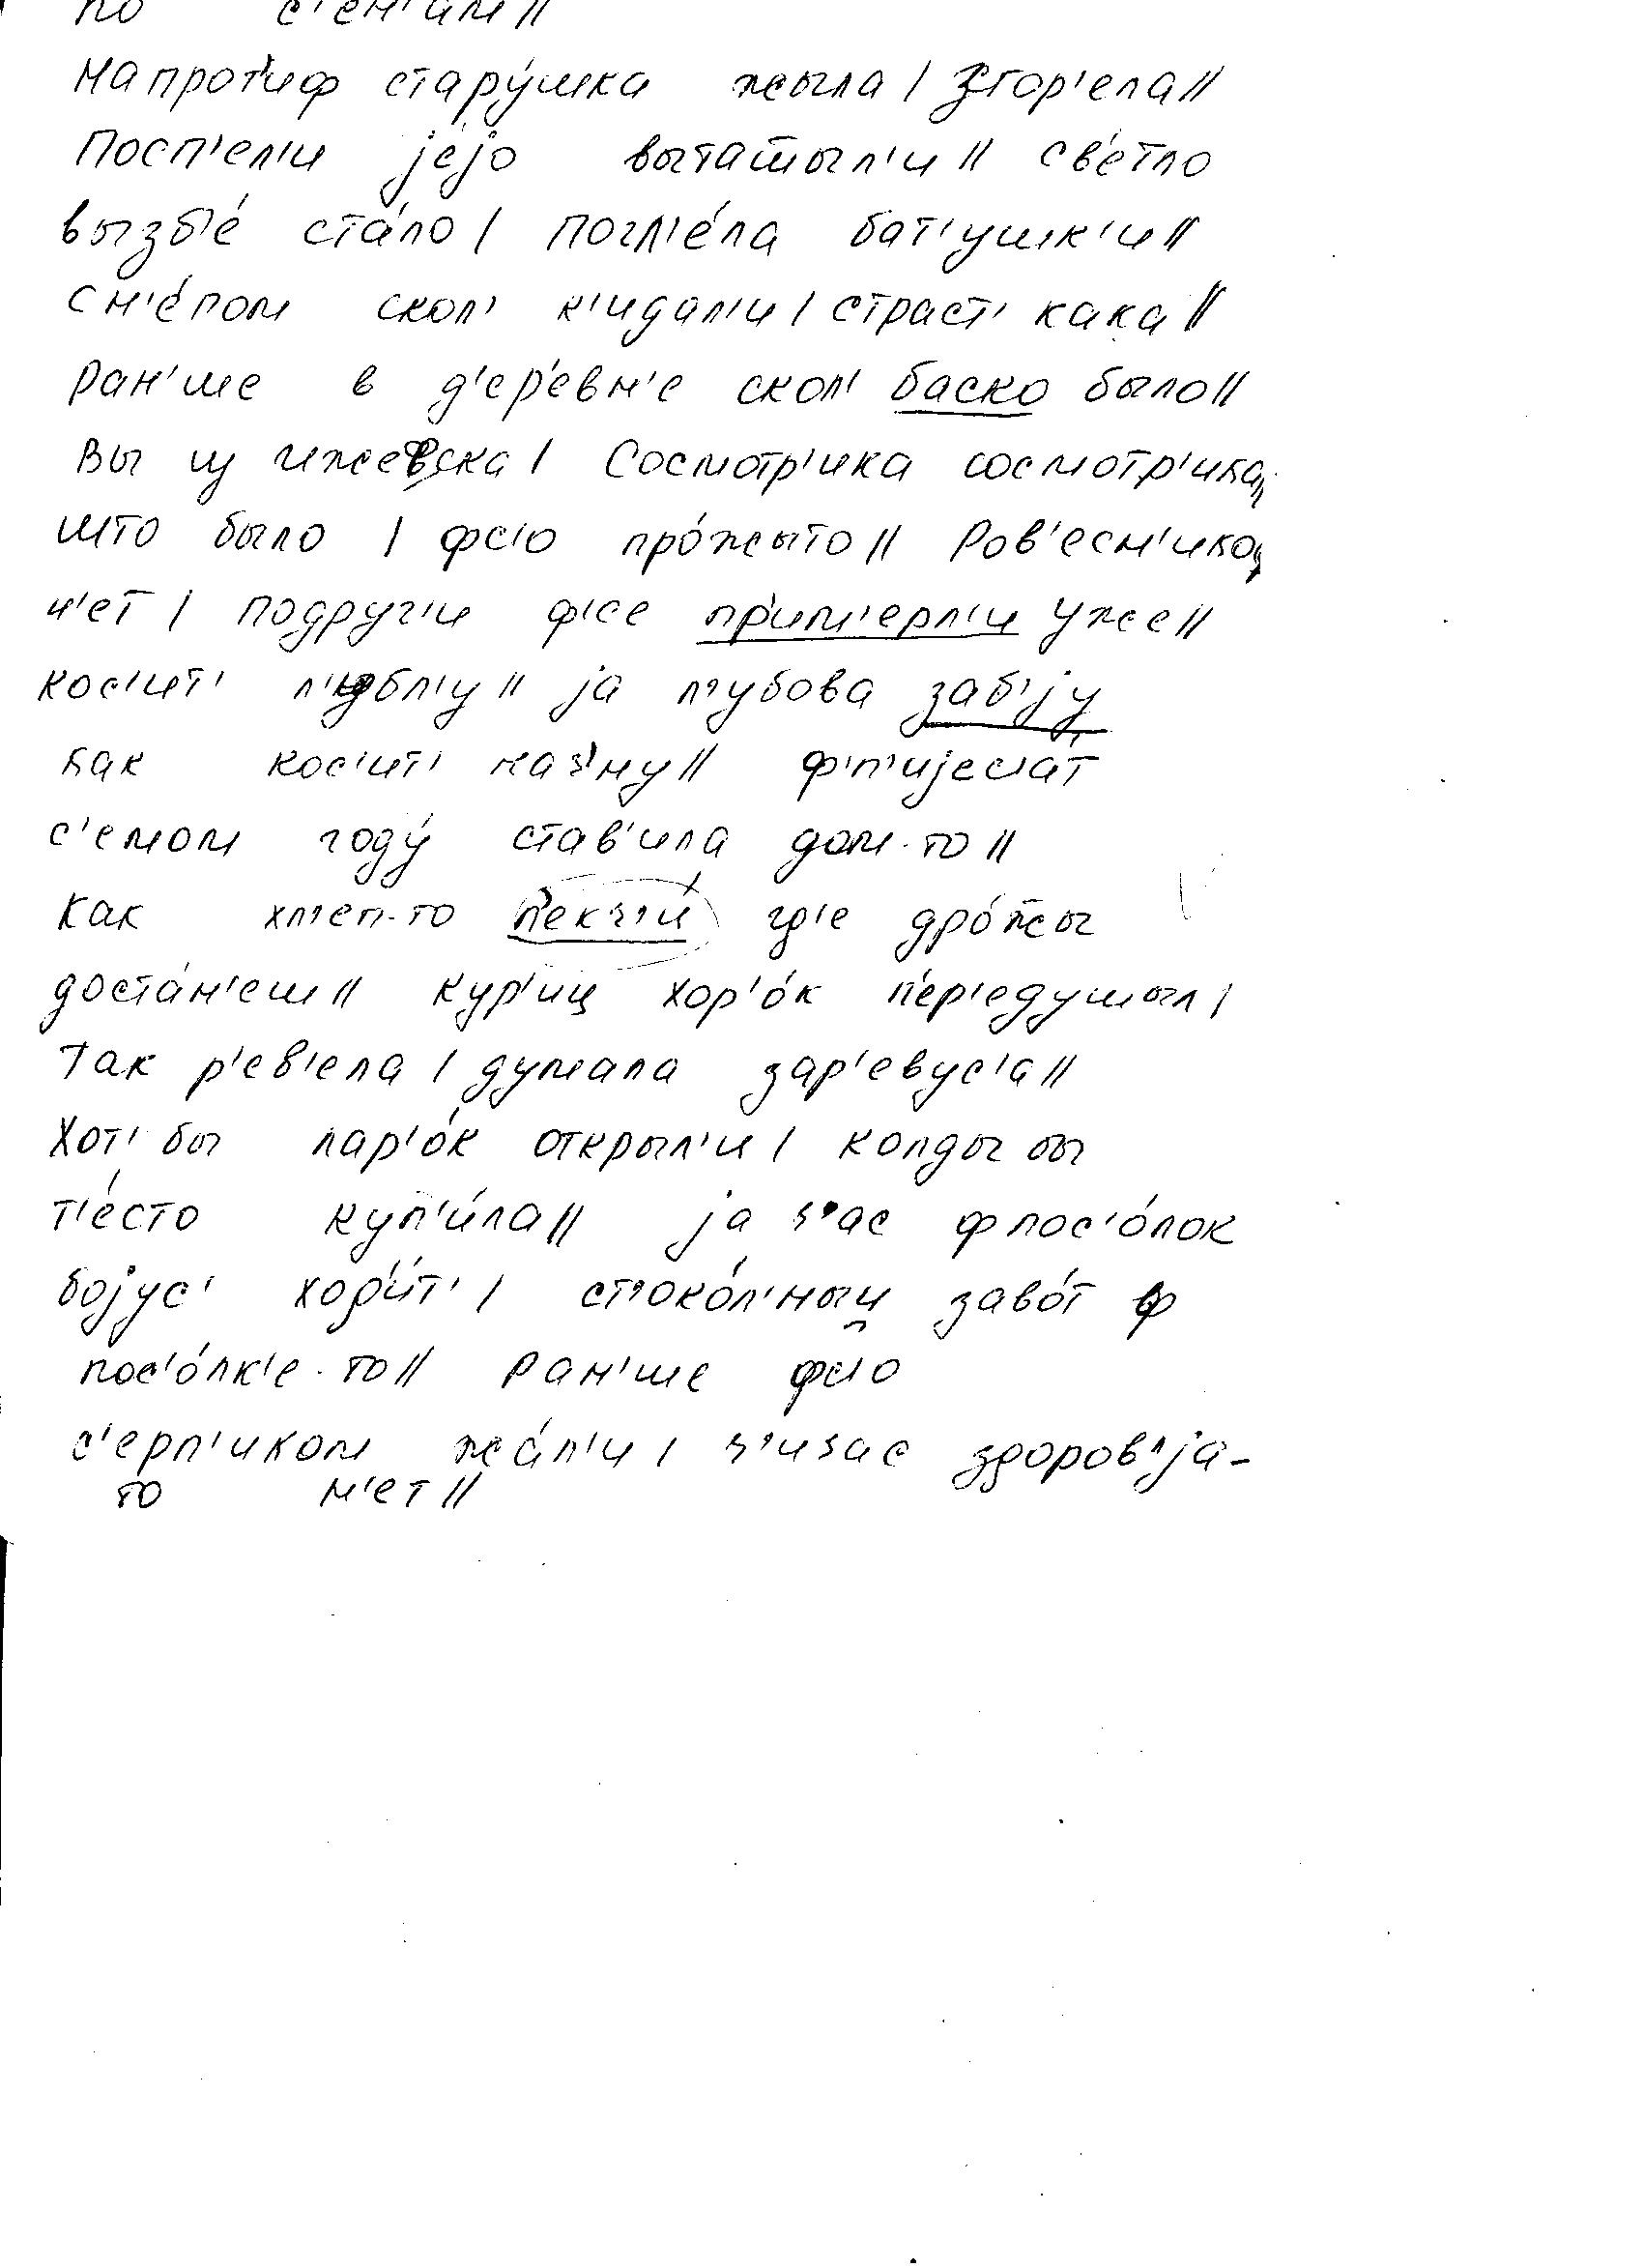 по с'ен'ам//
Напрот'иф стару́шка жыла / згор'ела//
Посп'ел'и jejо вытатшыл'и // св'е́тло
вызб'е́ ста́ло / погл'е́ла бат'ушк'и//
Сн'е́гом скол' к'идал'и / страст' кака //
Ран'ше в д'ер'евн'е скол' баско было//
Вы иж ижефска / Сосмотр'ика сосмотр'ика,
што было / фс'о про́жыто // Ров'есн'ико
н'ет / подруг'и ф'се при́м'ерл'и уже//
кос'ит' л'убл'у // jа л'убова заб'jу
как кос'ит' начну// ф п'ијес'а́т
с'емом году́ став'ила дом-то //
Как хл'еп-то п'екч'и́ гд'е дро́жы
доста́н'еш// кур'иц хор'о́к п'ер'едушыл /
Так р'ев'ела / думала зар'евус'а//
Хот' бы лар'о́к открыл'и / колды бы
т'е́сто куп'и́ла// jа ч'ас ф пос'о́лок
боjус' ход'и́т' / ст'око́л'ный заво́т ф
пос'о́лк'е-то// Ран'ше фс'о
с'ерп'иком жа́л'и / ч'ичас здоров'jа-
то н'ет//